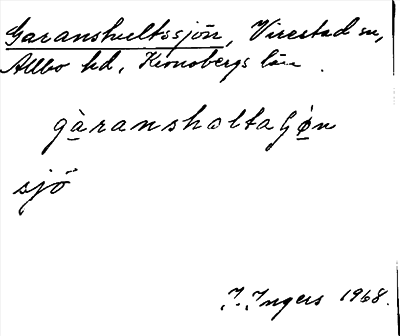 Garanshultssjön, Virestad sn,
Allbo hd, Kronobergs län.
gàransholtaʃø̀n
sjö
I. Ingers 1968.